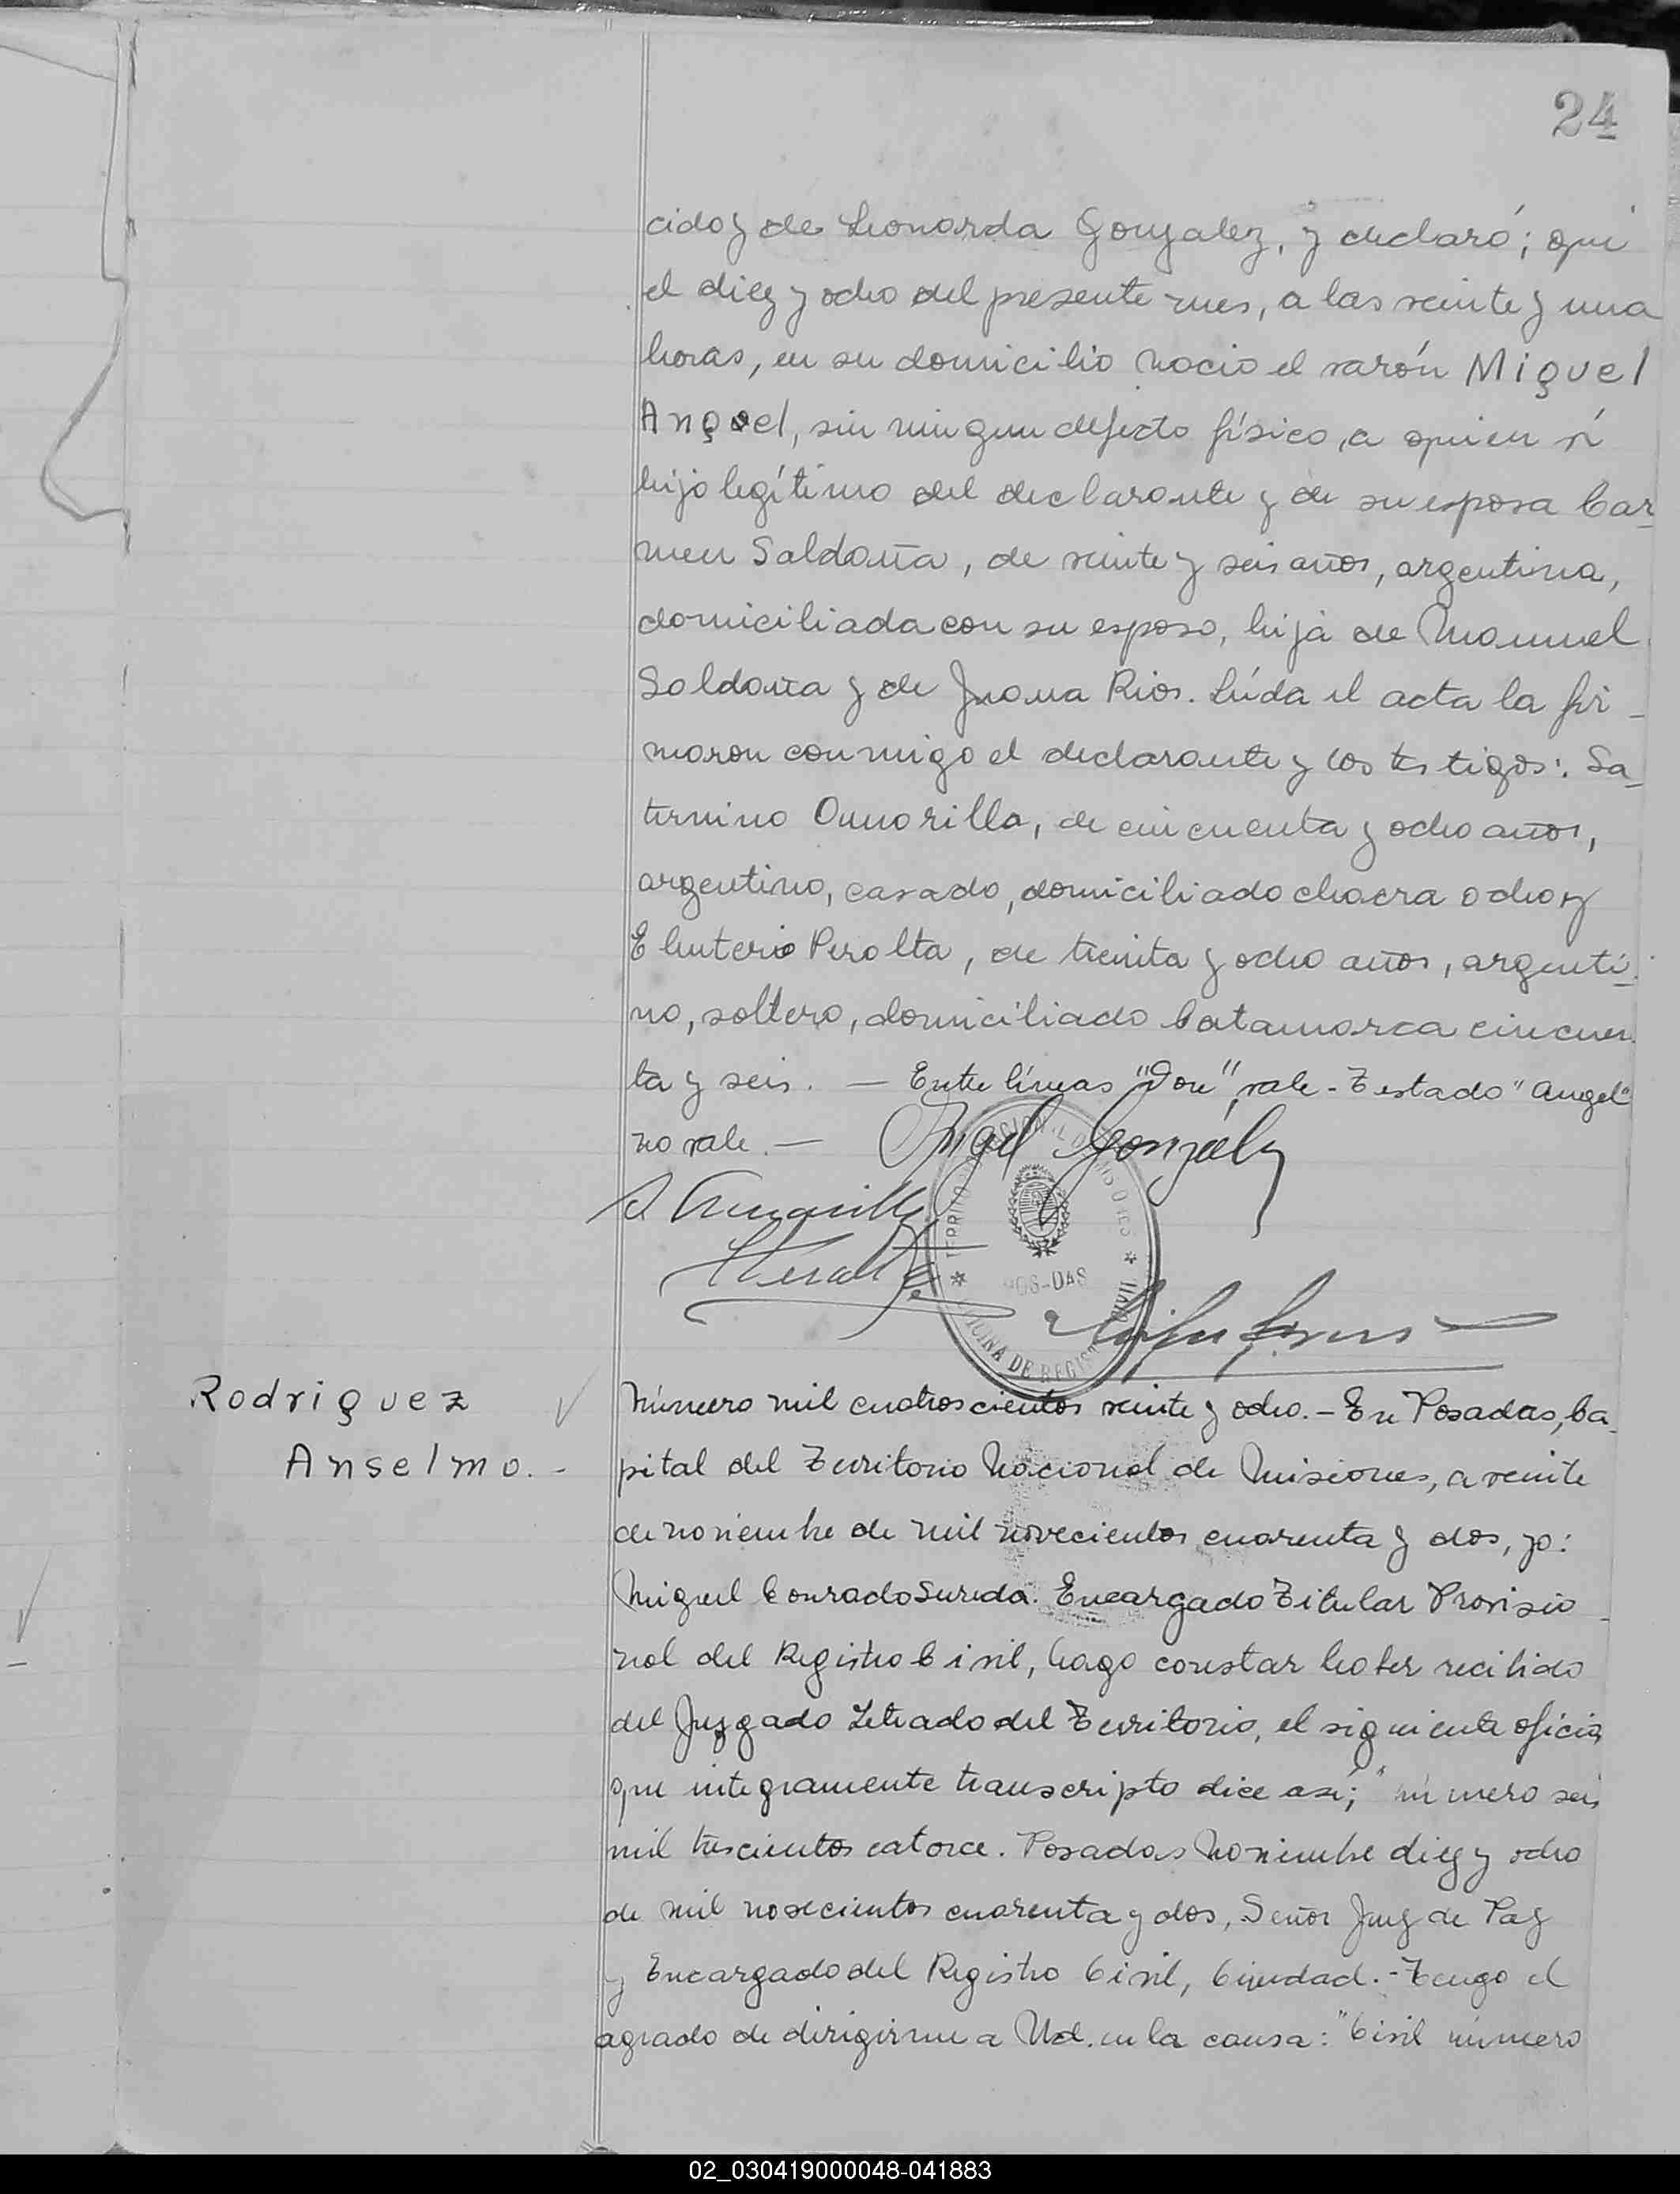 24
cido y de Leonarda Gonzalez, y declaró; que
el diez y ocho del presente mes, a las veinte y una
horas, en su domicilio nacio el varón Miguel
Angel, sin ningun defecto físico, a quien ví
hijo legítimo del declarante y de su esposa Car-
men Saldaña, de veinte y seis años, argentina,
domiciliada con su esposo, hija de Manuel
Saldaña y de Juana Rios. Leída el acta la fir-
maron conmigo el declarante y los testigos: Sa-
turnino Amarilla, de cincuenta y ocho años,
argentino, casado, domiciliado chacra ocho y
Eleuterio Peralta, de treinta y ocho años, argenti-
no, soltero, domiciliado Catamarca cincuen
ta y seis. — Entre líneas "Don", vale - Testado "Angel"
no vale. — Angel Gonzalez
POS-DAS
OFICINA DE REGIST CIVIL
Rodriguez
Anselmo. -
Número mil cuatroscientos veinte y ocho. - En Posadas, Ca-
pital del Territorio Nacional de Misiones, a veinte
de noviembre de mil novecientos cuarenta y dos, yo:
Miguel Conrado Sureda. Encargado Titular Provisio-
nal del Registro Civil, hago constar haber recibido
del Juzgado Letrado del Territorio, el siguiente oficio
que integramente transcripto dice asi; "número seis
mil trescientos catorce. Posadas Noviembre diez y ocho
de mil novecientos cuarenta y dos, Señor Juez de Paz
y Encargado del Registro Civil, Ciudad. - Tengo el
agrado de dirigirme a Ud. en la causa: "Civil número
02_030419000048-041883